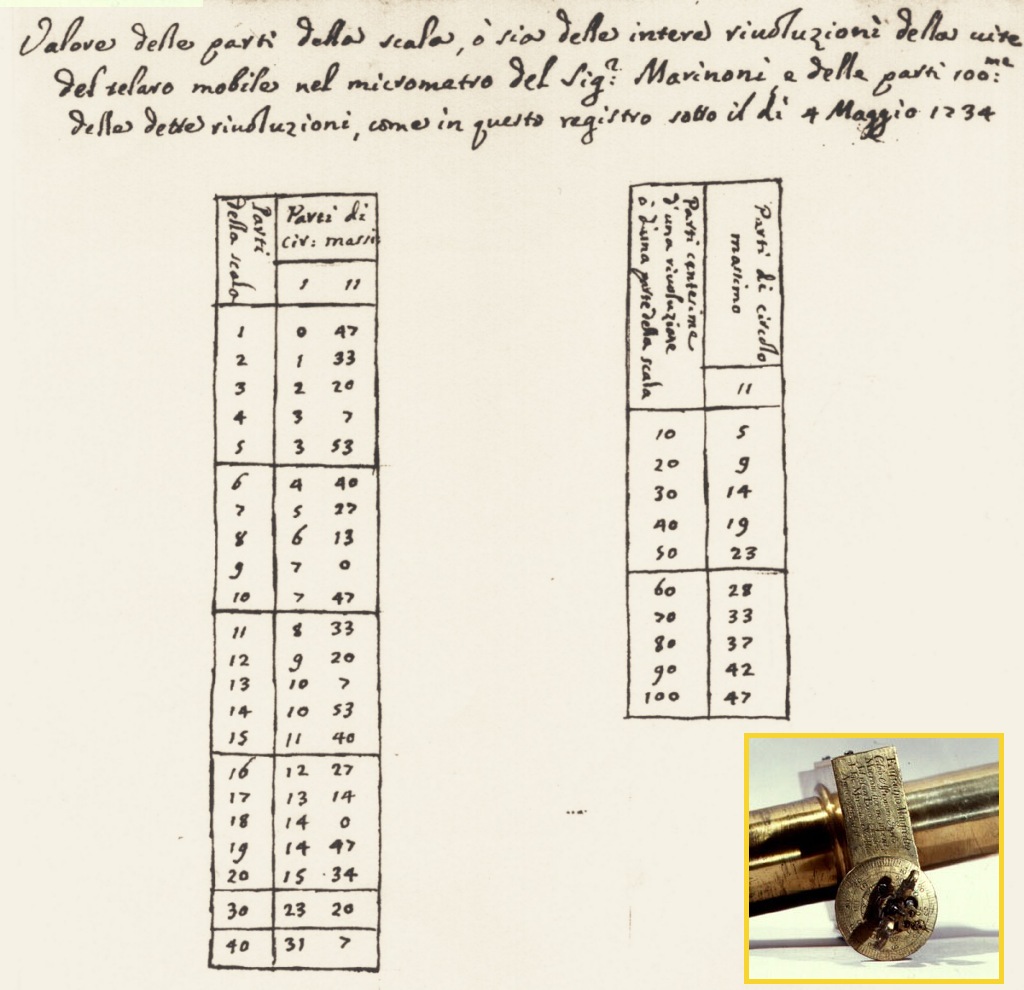 Valore delle parti della scala, ò sia delle intere riuoluzioni della uite
del telaro mobile nel micrometro del Sig.r Marinoni, e delle parti 100:me
delle dette riuoluzioni, come in questo registro sotto il dì 4 Maggio 1734
Parti della scala | Parti di cir: massi:
I II
1 0 47
2 1 33
3 2 20
4 3 7
5 3 53
6 4 40
7 5 27
8 6 13
9 7 0
10 7 47
11 8 33
12 9 20
13 10 7
14 10 53
15 11 40
16 12 27
17 13 14
18 14 0
19 14 47
20 15 34
30 23 20
40 31 7
Parti centesime
d'una riuoluzione
ò d'una parte della scala
Parti di circolo
massimo
II
10 5
20 9
30 14
40 19
50 23
60 28
70 33
80 37
90 42
100 47